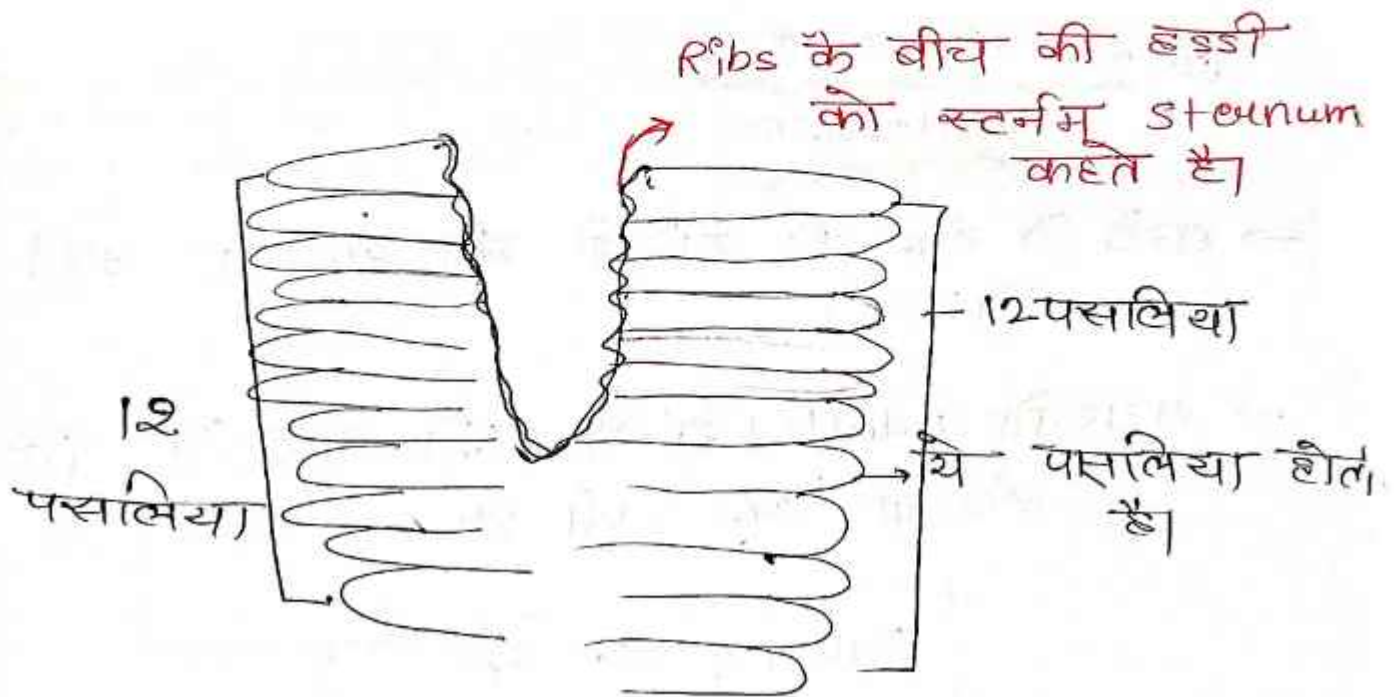 Ribs के बीच की हड्डी
को स्टर्नम् sternum
कहते है।
12पसलिया
12
पसलिया
ये पसलिया होत
है।